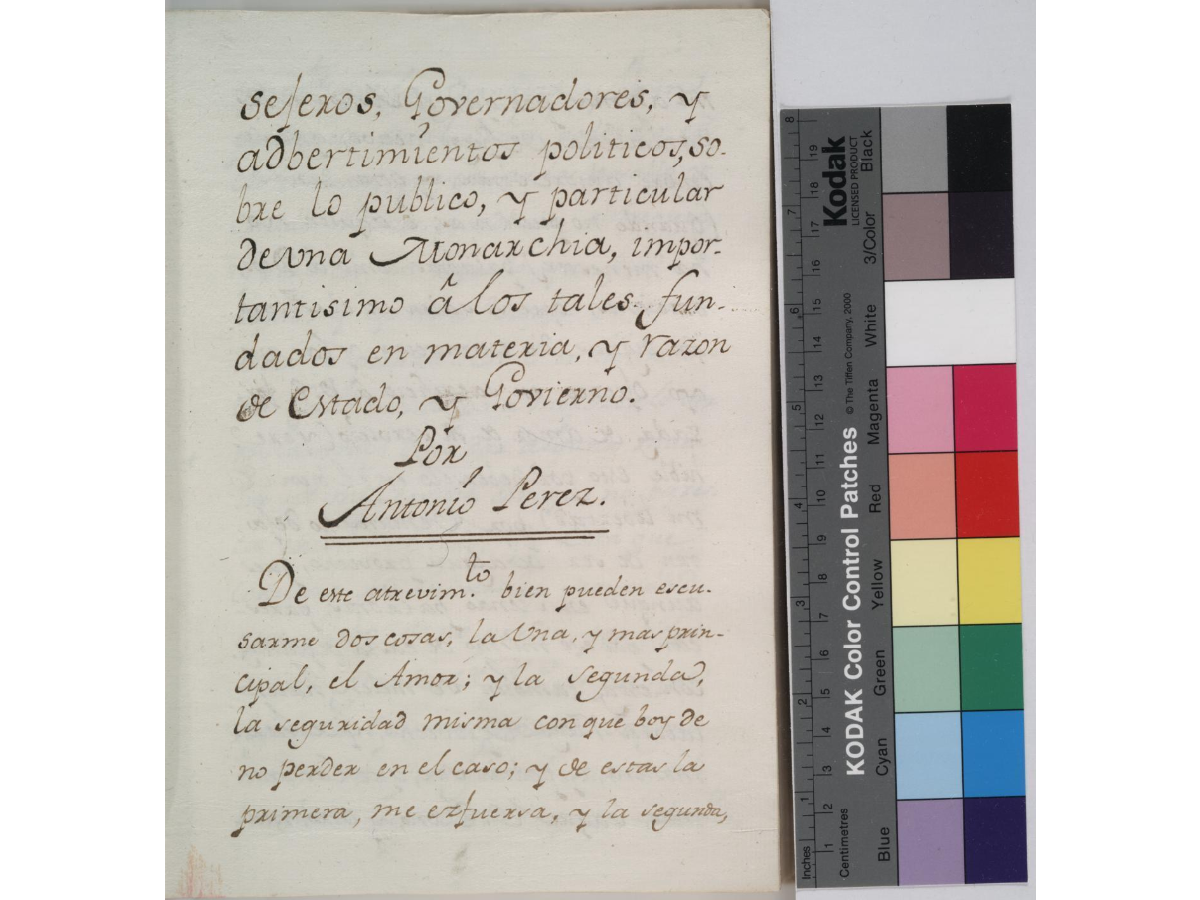 sejeros, Governadores, y
adbertimientos politicos, so-
bre lo publico, y particular
de vna Monarchia, impor-
tantisimo â los tales. fun-
dados en materia, y razon
de Estado, y Govierno.
Por
Antonio Perez.
De este atrevim.to bien pueden escu-
sarme dos cosas, la Vna, y mas prin-
cipal, el Amor; y la segunda,
la seguridad misma con que boy de
no perder en el caso; y de estas la
primera, me ezfuersa, y la segunda,
Kodak
LICENSED PRODUCT
KODAK Color Control Patches
© The Tiffen Company, 2000
Black
3/Color
White
Magenta
Red
Yellow
Green
Cyan
Blue
Inches
1 2 3 4 5 6 7 8
Centimetres
1 2 3 4 5 6 7 8 9 10 11 12 13 14 15 16 17 18 19